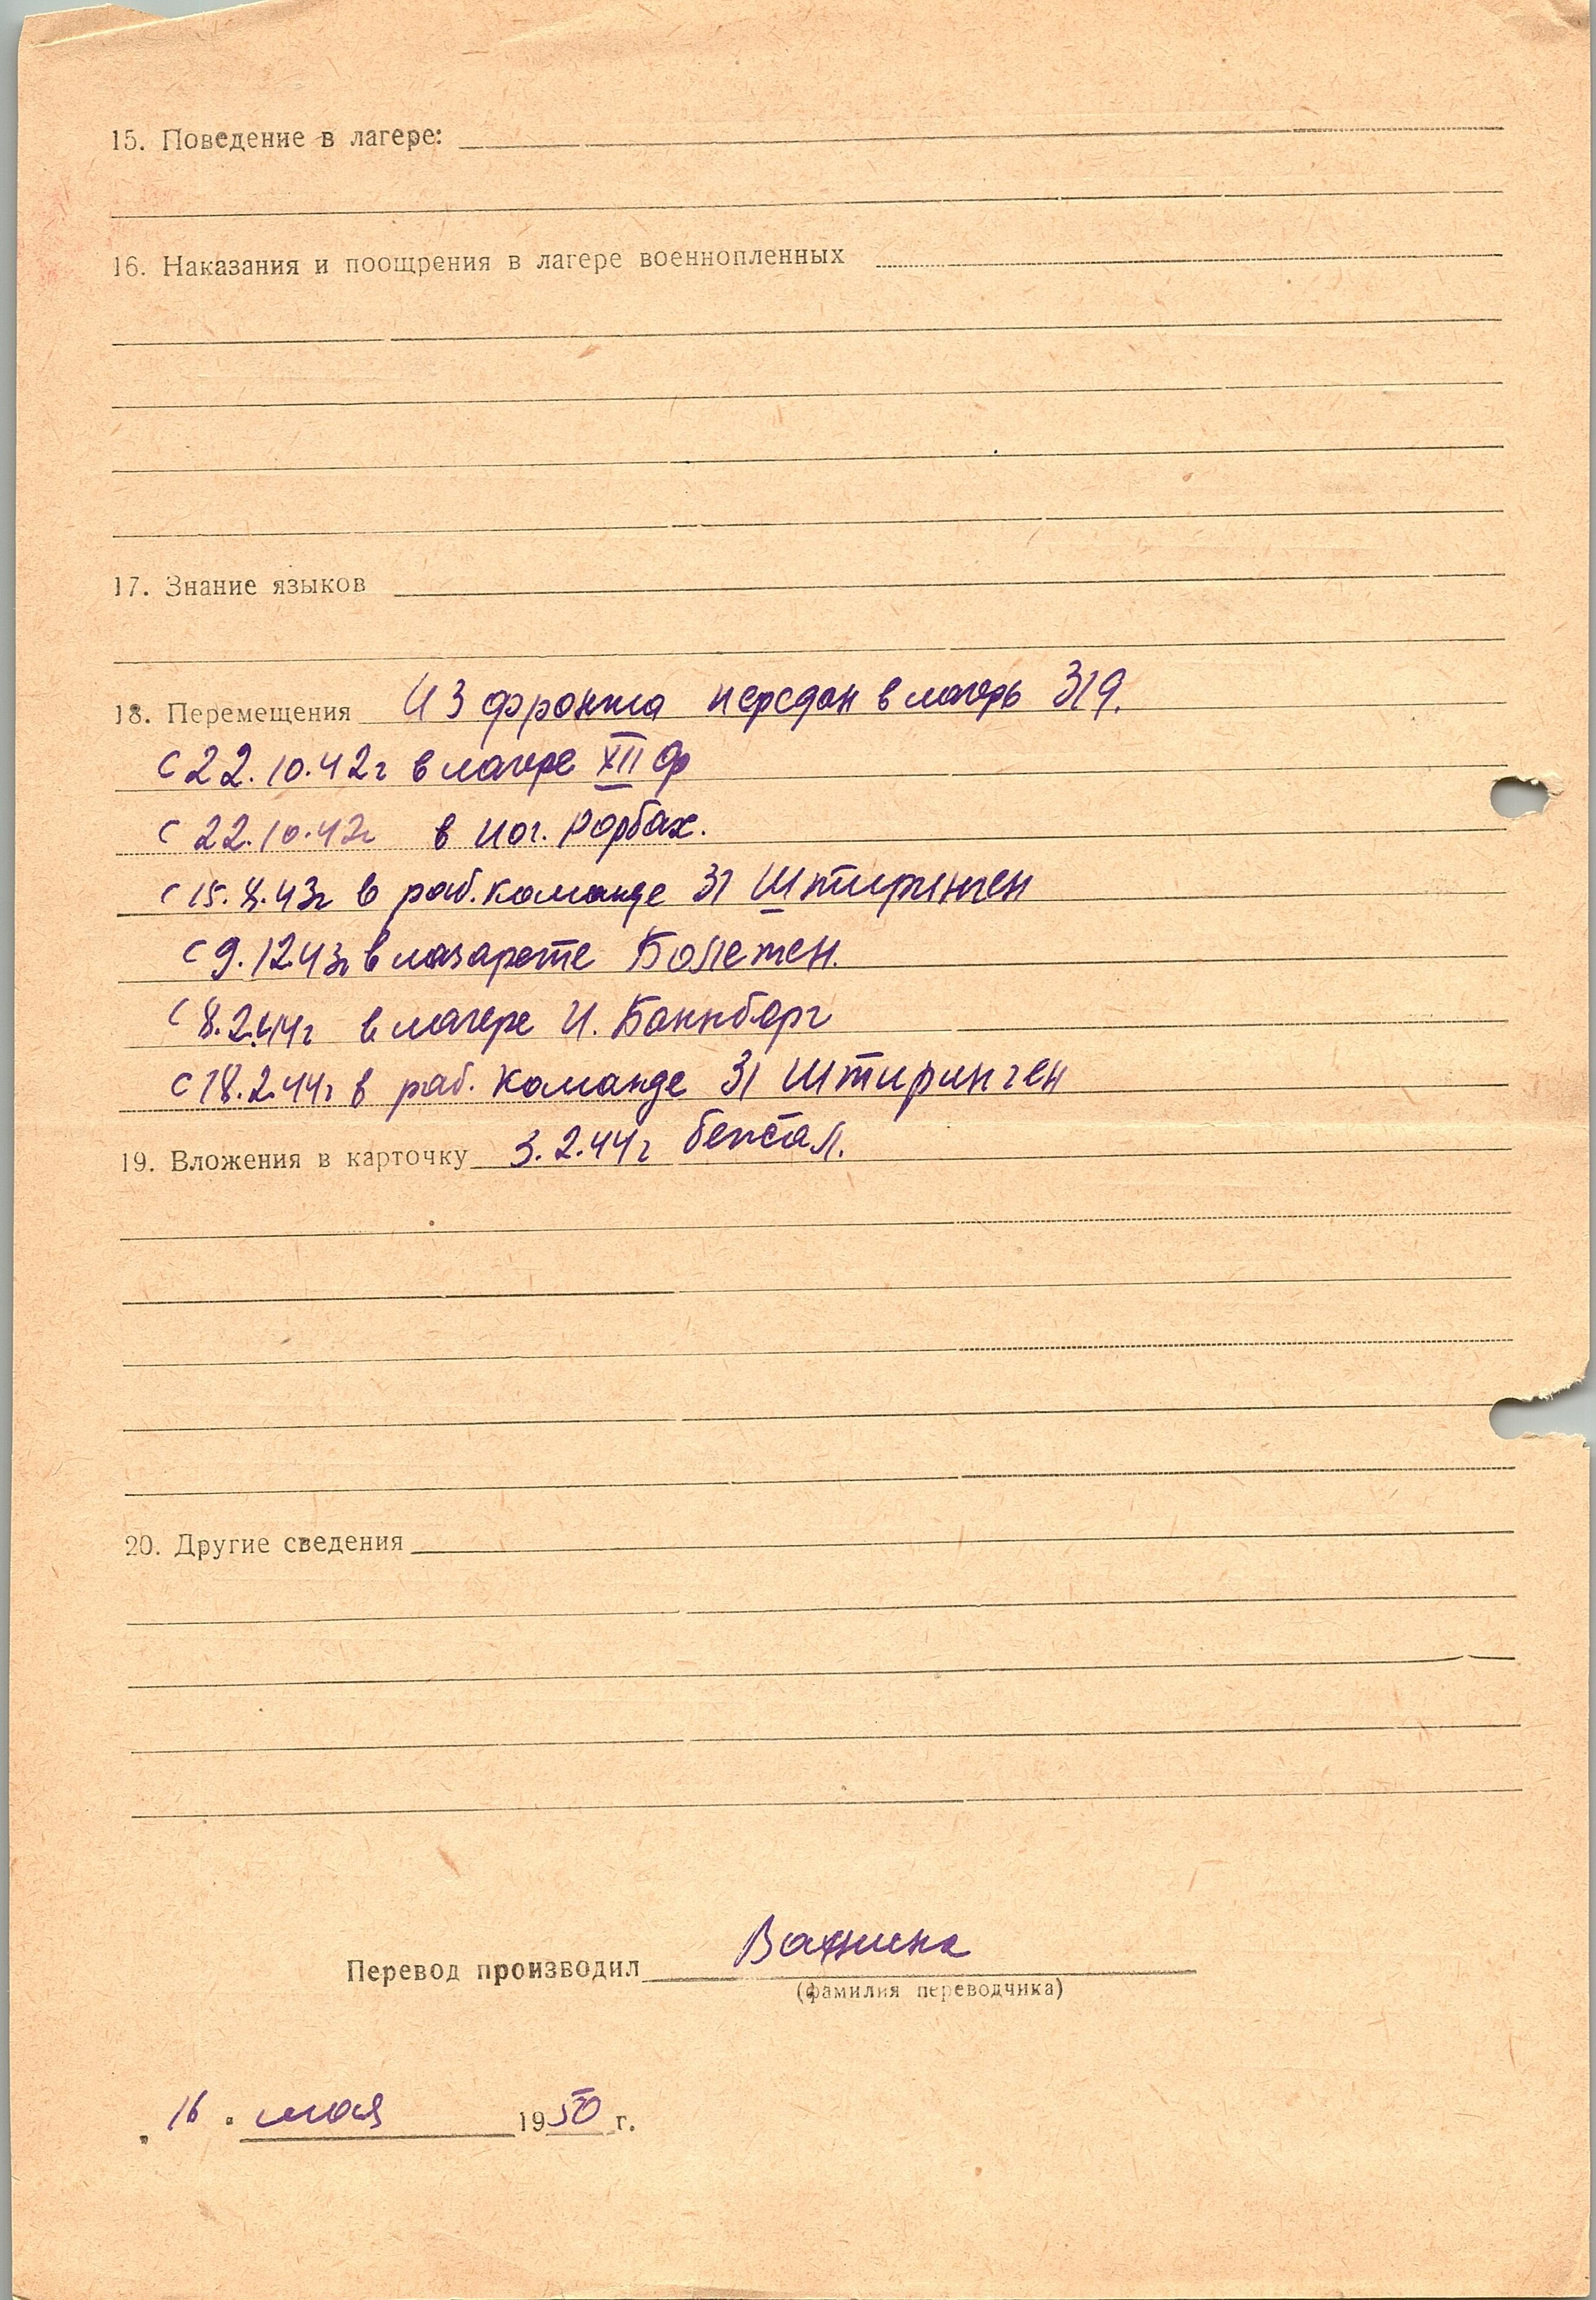 15. Поведение в лагере:
16. Наказания и поощрения в лагере военнопленных
17. Знание языков
18. Перемещения Из фронта передан в лагерь 319.
С 22.10.42г в лагере XII Ф
С 22.10.42г в Иог. Рорбах.
С 15.8.43г в раб. команде 31 Штиринген
С 9.12.43г в лазарете Болетен.
С 8.2.44г в лагере И. Баннберг
С 18.2.44г в раб. команде 31 Штиринген
19. Вложения в карточку 3.2.44г
20. Другие сведения
Перевод производил
(фамилия переводчика)
„ 16 " мая 1950 г.